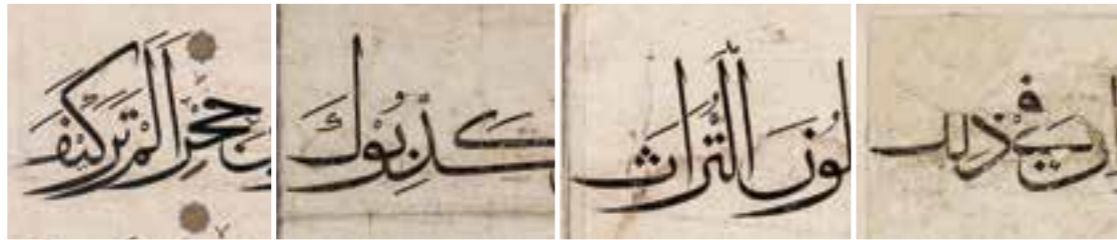 حجر الم تر كيف
كَذَّبُوكَ
لُونَ التُّرَاثَ
في ذلك